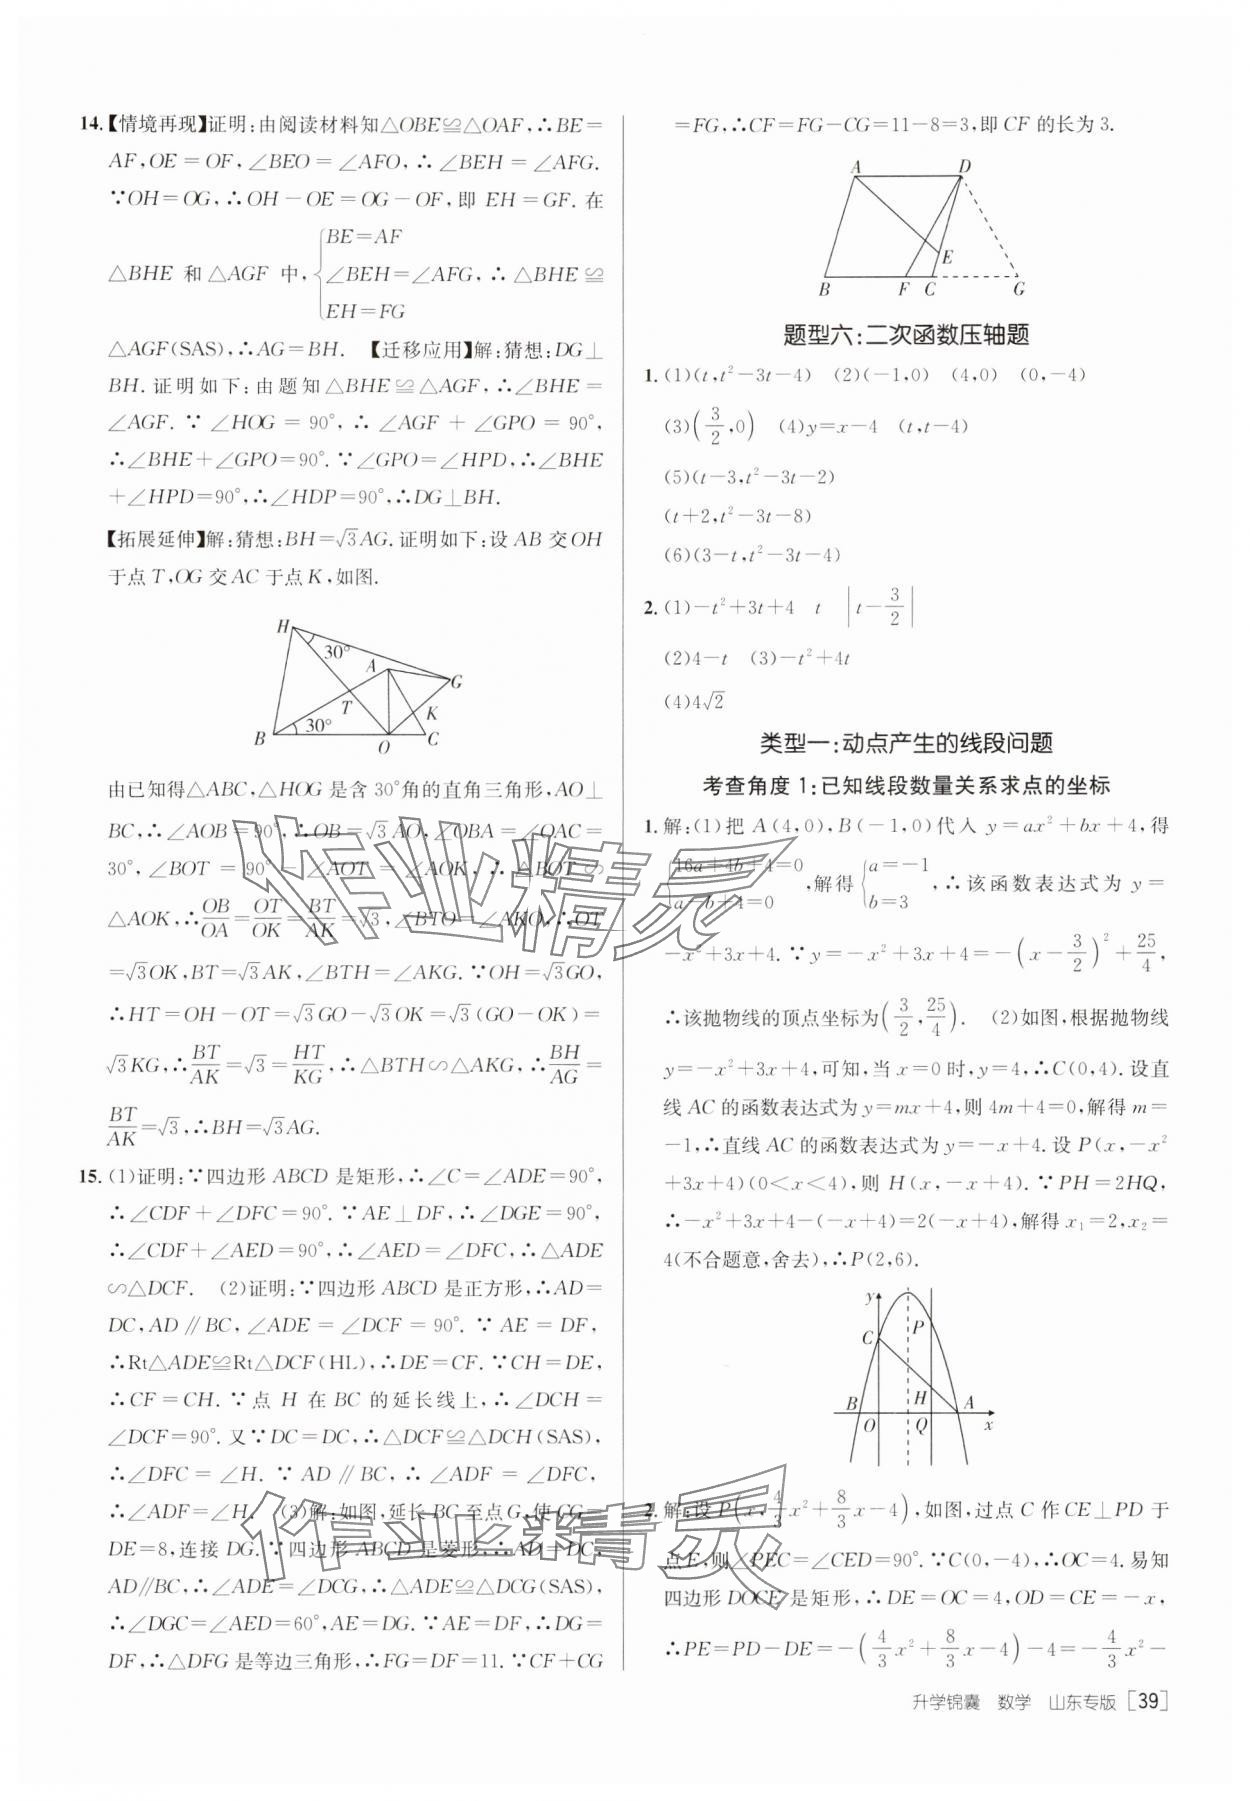 14.【情境再现】证明:由阅读材料知△OBE≌△OAF,∴BE=
AF,OE=OF,∠BEO=∠AFO,∴∠BEH=∠AFG.
∵OH=OG,∴OH-OE=OG-OF,即 EH=GF. 在
△BHE 和△AGF 中,{BE=AF
∠BEH=∠AFG,∴△BHE≌
EH=FG
△AGF(SAS),∴AG=BH. 【迁移应用】解:猜想:DG⊥
BH. 证明如下:由题知△BHE≌△AGF,∴∠BHE=
∠AGF. ∵∠HOG=90°,∴∠AGF+∠GPO=90°,
∴∠BHE+∠GPO=90°. ∵∠GPO=∠HPD,∴∠BHE
+∠HPD=90°,∴∠HDP=90°,∴DG⊥BH.
【拓展延伸】解:猜想:BH=√3AG. 证明如下:设 AB 交 OH
于点 T,OG 交 AC 于点 K,如图.
H
30°
A
G
T
K
30°
B
O
C
由已知得△ABC,△HOG 是含 30°角的直角三角形,AO⊥
BC,∴∠AOB=90°,∴OB=√3AO,∠OBA=∠OAC=
30°,∠BOT=90°-∠AOT=∠AOK,∴△BOT∽
△AOK,∴OB/OA=OT/OK=BT/AK=√3,∠BTO=∠AKO,∴OT
=√3OK,BT=√3AK,∠BTH=∠AKG. ∵OH=√3GO,
∴HT=OH-OT=√3GO-√3OK=√3(GO-OK)=
√3KG,∴BT/AK=√3=HT/KG,∴△BTH∽△AKG,∴BH/AG=
BT/AK=√3,∴BH=√3AG.
15. (1)证明:∵四边形 ABCD 是矩形,∴∠C=∠ADE=90°,
∴∠CDF+∠DFC=90°. ∵AE⊥DF,∴∠DGE=90°,
∴∠CDF+∠AED=90°,∴∠AED=∠DFC,∴△ADE
∽△DCF. (2)证明:∵四边形 ABCD 是正方形,∴AD=
DC,AD∥BC,∠ADE=∠DCF=90°. ∵AE=DF,
∴Rt△ADE≌Rt△DCF(HL),∴DE=CF. ∵CH=DE,
∴CF=CH. ∵点 H 在 BC 的延长线上,∴∠DCH=
∠DCF=90°. 又∵DC=DC,∴△DCF≌△DCH(SAS),
∴∠DFC=∠H. ∵AD∥BC,∴∠ADF=∠DFC,
∴∠ADF=∠H. (3)解:如图,延长 BC 至点 G,使 CG=
DE=8,连接 DG. ∵四边形 ABCD 是菱形,∴AD=DC,
AD∥BC,∴∠ADE=∠DCG,∴△ADE≌△DCG(SAS),
∴∠DGC=∠AED=60°,AE=DG. ∵AE=DF,∴DG=
DF,∴△DFG 是等边三角形,∴FG=DF=11. ∵CF+CG
=FG,∴CF=FG-CG=11-8=3,即 CF 的长为 3.
A
D
E
B
F
C
G
题型六:二次函数压轴题
1. (1)(t,t²-3t-4) (2)(-1,0) (4,0) (0,-4)
(3)(3/2,0) (4)y=x-4 (t,t-4)
(5)(t-3,t²-3t-2)
(t+2,t²-3t-8)
(6)(3-t,t²-3t-4)
2. (1)-t²+3t+4 t |t-3/2|
(2)4-t (3)-t²+4t
(4)4√2
类型一:动点产生的线段问题
考查角度 1:已知线段数量关系求点的坐标
1. 解:(1)把 A(4,0),B(-1,0)代入 y=ax²+bx+4,得
{16a+4b+4=0
a-b+4=0 ,解得{a=-1
b=3 ,∴该函数表达式为 y=
-x²+3x+4. ∵y=-x²+3x+4=-(x-3/2)²+25/4,
∴该抛物线的顶点坐标为(3/2,25/4). (2)如图,根据抛物线
y=-x²+3x+4,可知,当 x=0 时,y=4,∴C(0,4). 设直
线 AC 的函数表达式为 y=mx+4,则 4m+4=0,解得 m=
-1,∴直线 AC 的函数表达式为 y=-x+4. 设 P(x,-x²
+3x+4)(0<x<4),则 H(x,-x+4). ∵PH=2HQ,
∴-x²+3x+4-(-x+4)=2(-x+4),解得 x₁=2,x₂=
4(不合题意,舍去),∴P(2,6).
y
P
C
H
B
A
O
Q
x
2. 解:设 P(x,4/3x²+8/3x-4),如图,过点 C 作 CE⊥PD 于
点 E,则∠PEC=∠CED=90°. ∵C(0,-4),∴OC=4. 易知
四边形 DOCE 是矩形,∴DE=OC=4,OD=CE=-x,
∴PE=PD-DE=-(4/3x²+8/3x-4)-4=-4/3x²-
升学锦囊 数学 山东专版 [39]
作业精灵
作业精灵